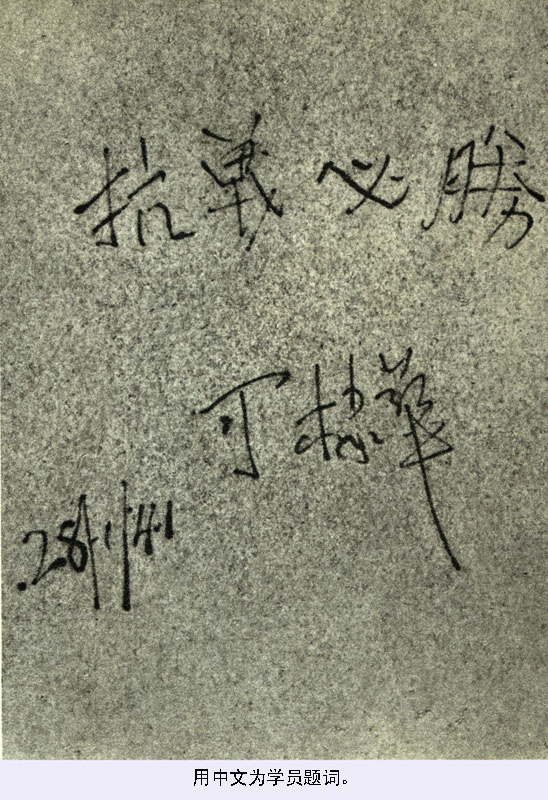 抗戰必勝
可棣華
28/1/41
用中文为学员题词。